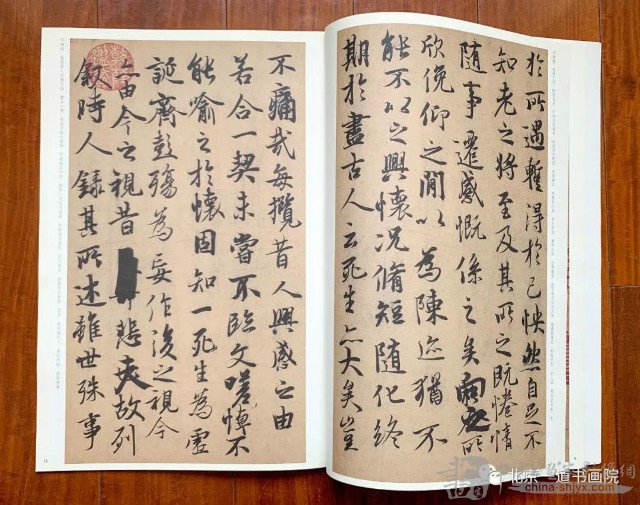 於所遇暫得於己怏然自足不
知老之將至及其所之既惓情
隨事遷感慨係之矣向之所
欣俛仰之閒以為陳迹猶不
能不以之興懷況脩短隨化終
期於盡古人云死生亦大矣豈
不痛哉每攬昔人興感之由
若合一契未嘗不臨文嗟悼不
能喻之於懷固知一死生為虛
誕齊彭殤為妄作後之視今
亦由今之視昔悲夫故列
叙時人錄其所述雖世殊事
北京 道书画院
china-shjyx.com